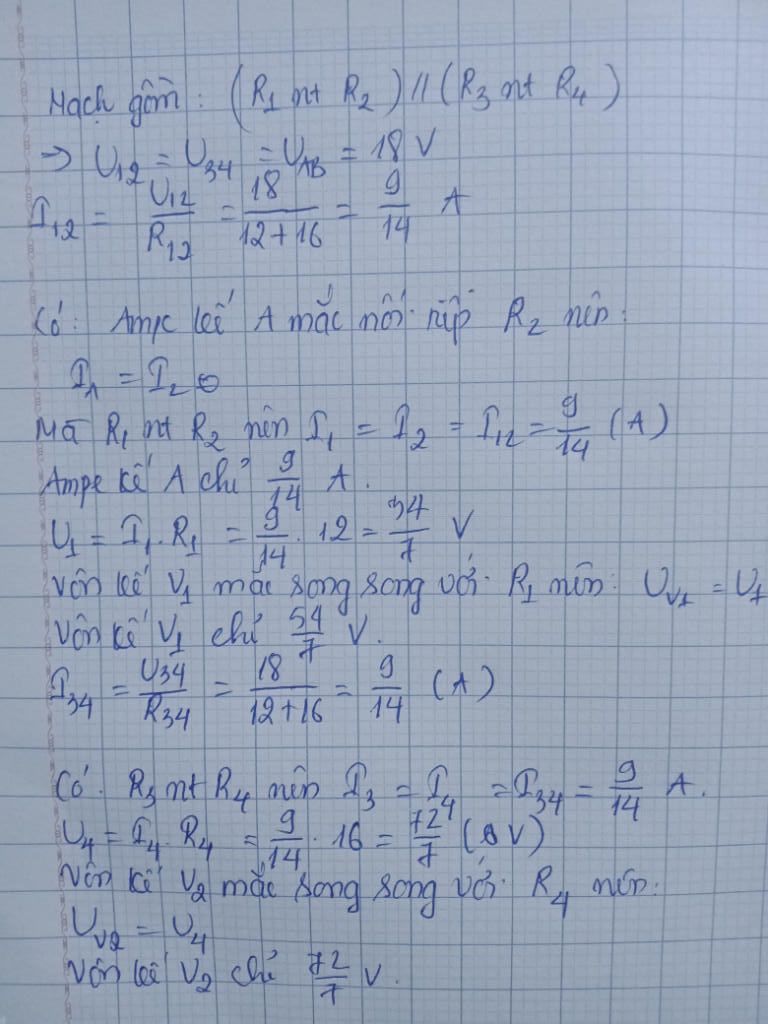 Mạch gồm: (R₁ nt R₂) // (R₃ nt R₄)
=> U₁₂ = U₃₄ = U_AB = 18 V
I₁₂ = U₁₂/R₁₂ = 18/(12+16) = 9/14 A
Có: Ampe kế A mắc nối tiếp R₂ nên:
I_A = I₂
Mà R₁ nt R₂ nên I₁ = I₂ = I₁₂ = 9/14 (A)
Ampe kế A chỉ 9/14 A.
U₁ = I₁.R₁ = 9/14 . 12 = 54/7 V
Vôn kế V₁ mắc song song với R₁ nên: U_V₁ = U₁
Vôn kế V₁ chỉ 54/7 V.
I₃₄ = U₃₄/R₃₄ = 18/(12+16) = 9/14 (A)
Có R₃ nt R₄ nên I₃ = I₄ = I₃₄ = 9/14 A.
U₄ = I₄.R₄ = 9/14 . 16 = 72/7 (V)
Vôn kế V₂ mắc song song với R₄ nên:
U_V₂ = U₄
Vôn kế V₂ chỉ 72/7 V.